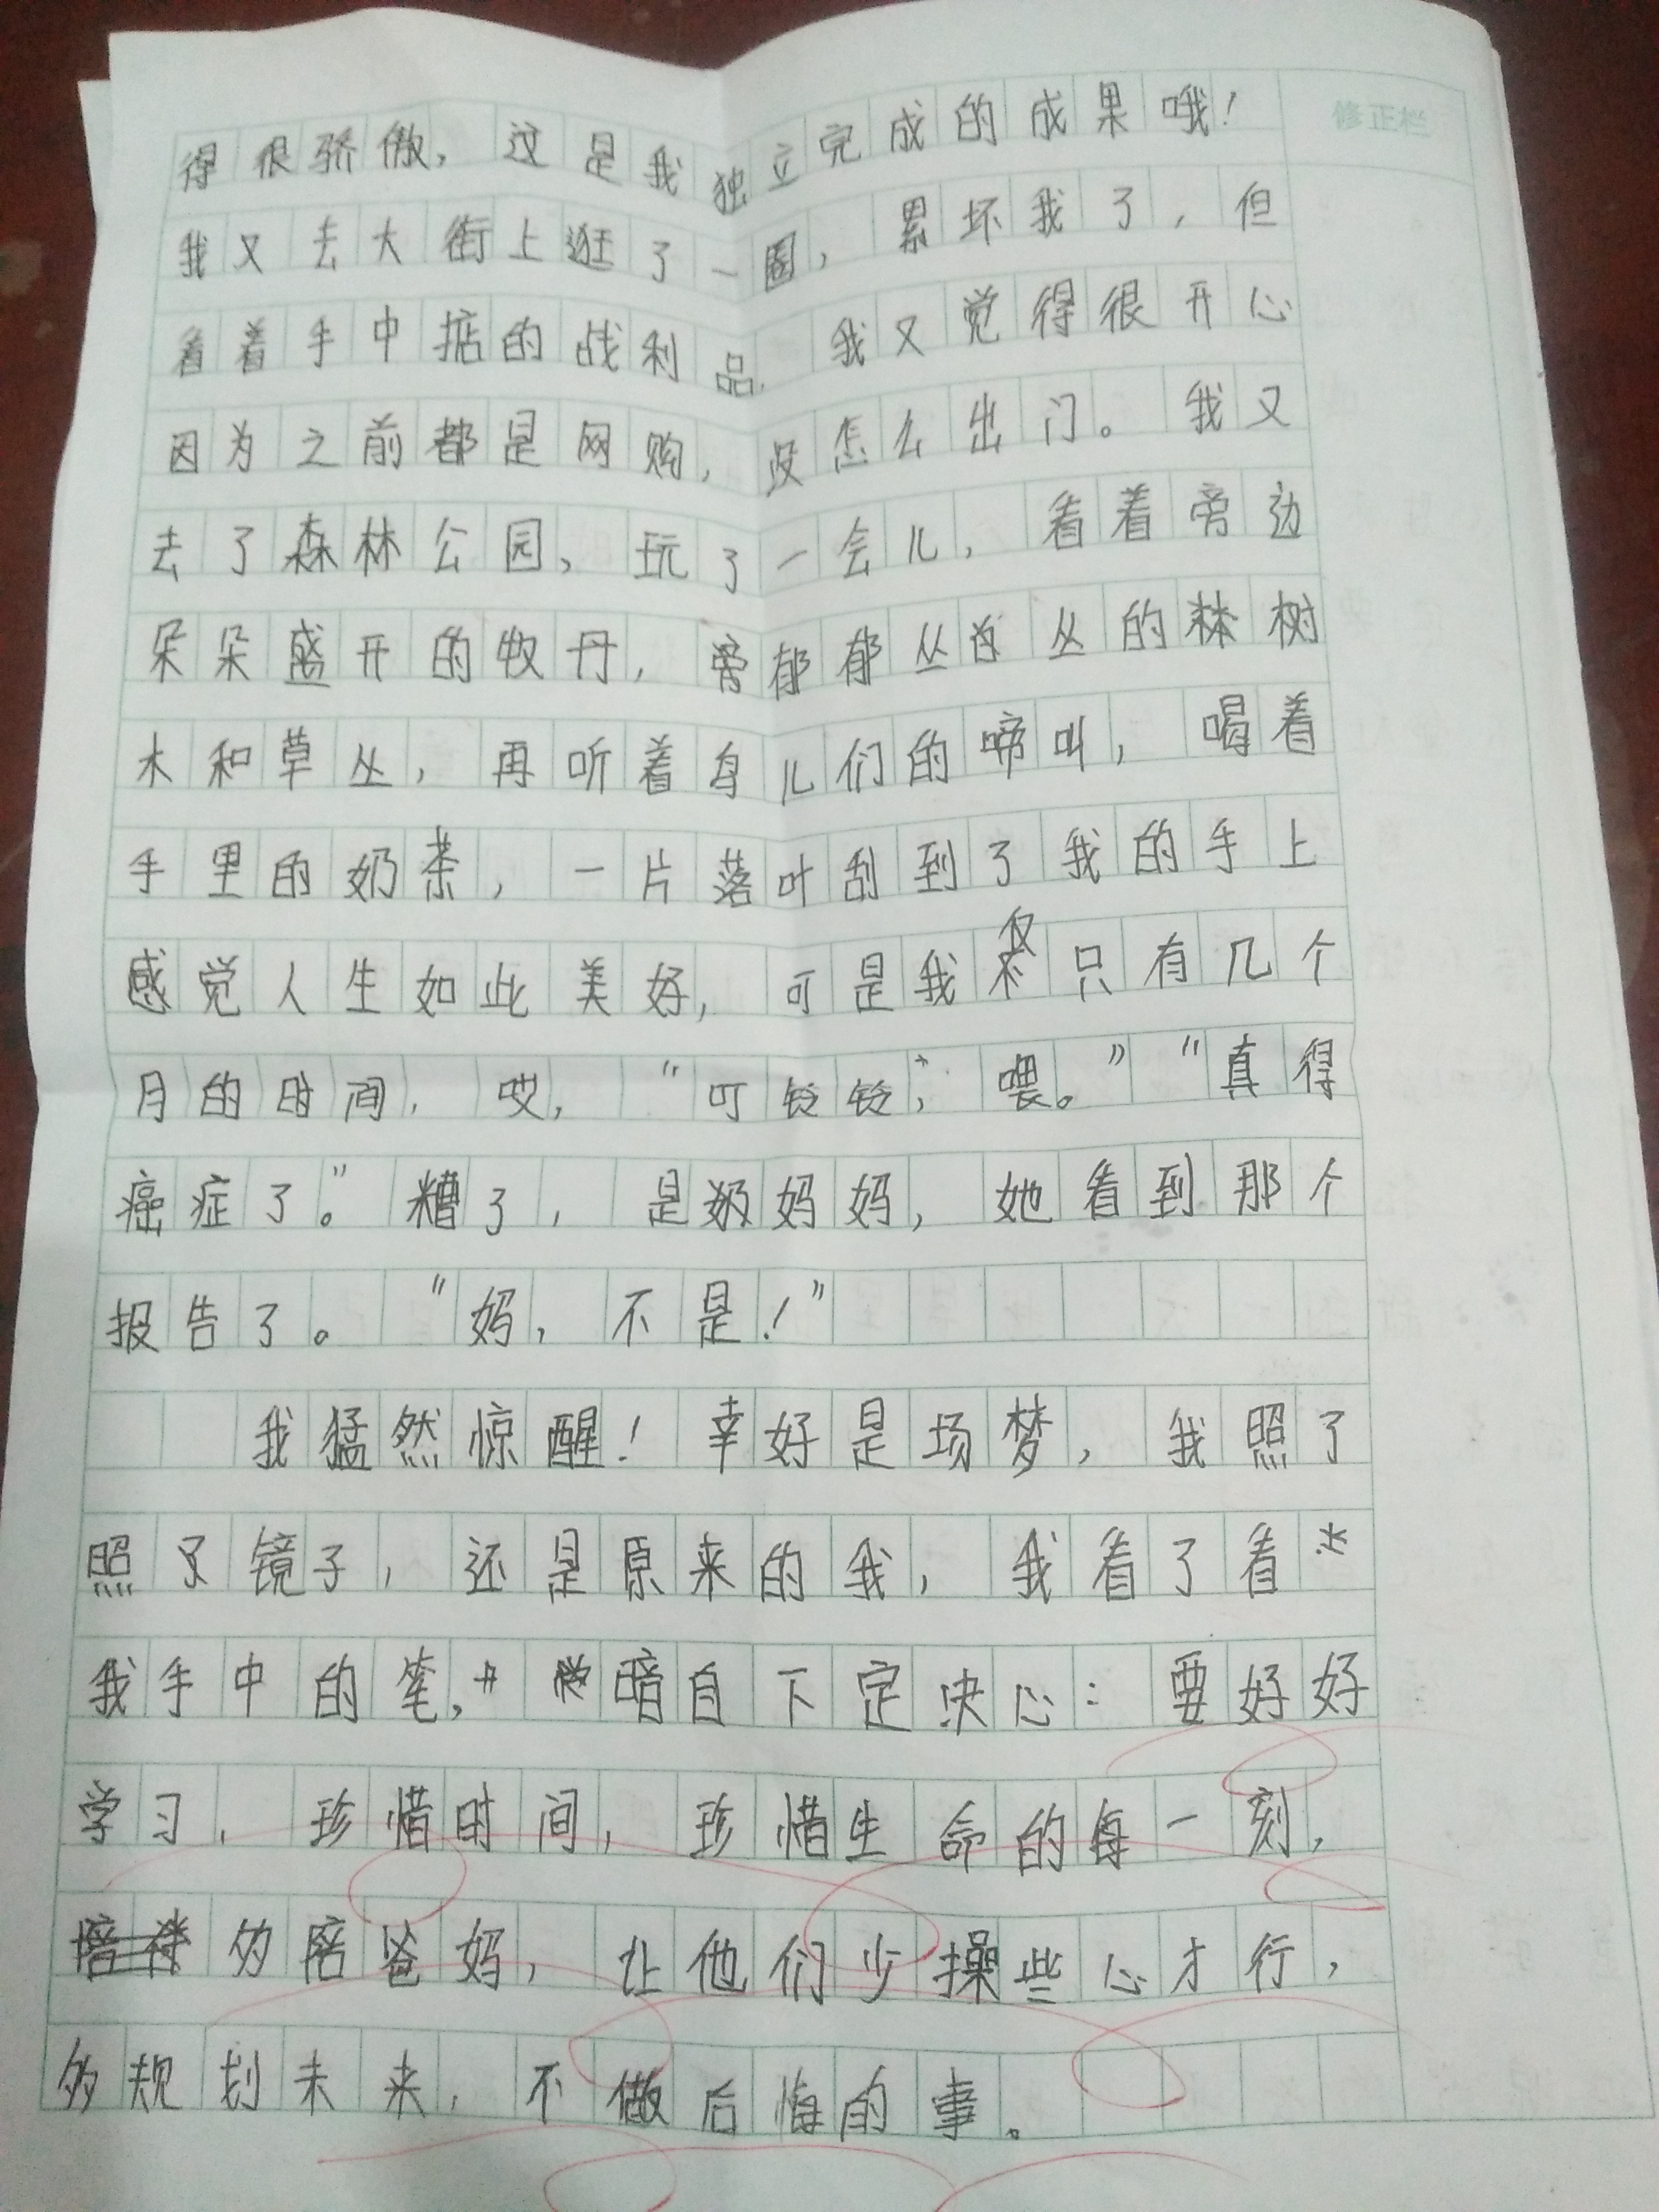 修正栏
得很骄傲，这是我独立完成的成果哦！
我又去大街上逛了一圈，累坏我了，但
看着手中掂的战利品，我又觉得很开心
因为之前都是网购，没怎么出门。我又
去了森林公园，玩了一会儿，看着旁边
朵朵盛开的牧丹，旁郁郁丛丛的树
木和草丛，再听着鸟儿们的啼叫，喝着
手里的奶茶，一片落叶刮到了我的手上
感觉人生如此美好，可是我仅只有几个
月的时间，哎，“叮铃铃，”喂。”“真得
癌症了。”糟了，是妈妈，她看到那个
报告了。“妈，不是！”
我猛然惊醒！幸好是场梦，我照了
照了镜子，还是原来的我，我看了看
我手中的笔，暗自下定决心：要好好
学习，珍惜时间，珍惜生命的每一刻，
多陪爸妈，让他们少操些心才行，
多规划未来，不做后悔的事。